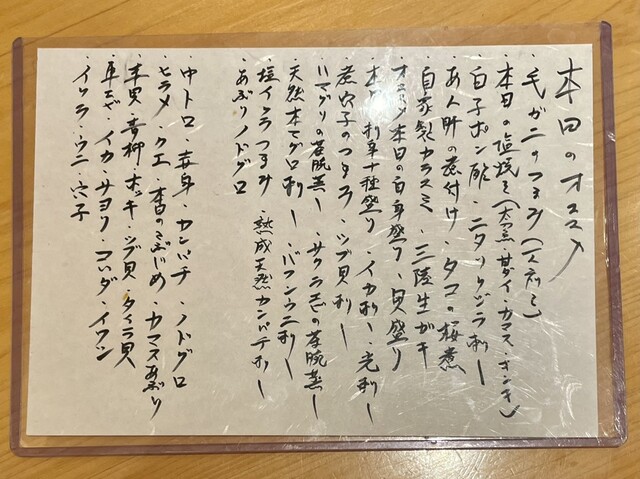 本日のオススメ
・毛ガニのつまみ
・本日の塩焼き(太刀魚・甘ダイ・カマス・キンキ)
・白子ポン酢・ニタリクジラ刺し
・あん肝の煮付け・タコの桜煮
・自家製カラスミ・三陸生ガキ
・オススメ本日の白身盛り・貝盛り
・本日の刺身十種盛り・イカ刺し・光刺し
・煮穴子のつまみ・ツブ貝刺し
・ハマグリの茶碗蒸し・サクラエビの茶碗蒸し
・天然本マグロ刺し・バフンウニ刺し
・塩イクラつまみ・熟成天然カンパチ刺し
・あぶりノドグロ
・中トロ・赤身・カンパチ・ノドグロ
・ヒラメ・クエ・本日のこぶじめ・カマスあぶり
・本貝・青柳・ホッキ・ツブ貝・タイラ貝
・車エビ・イカ・サヨリ・コハダ・イワシ
・イクラ・ウニ・穴子